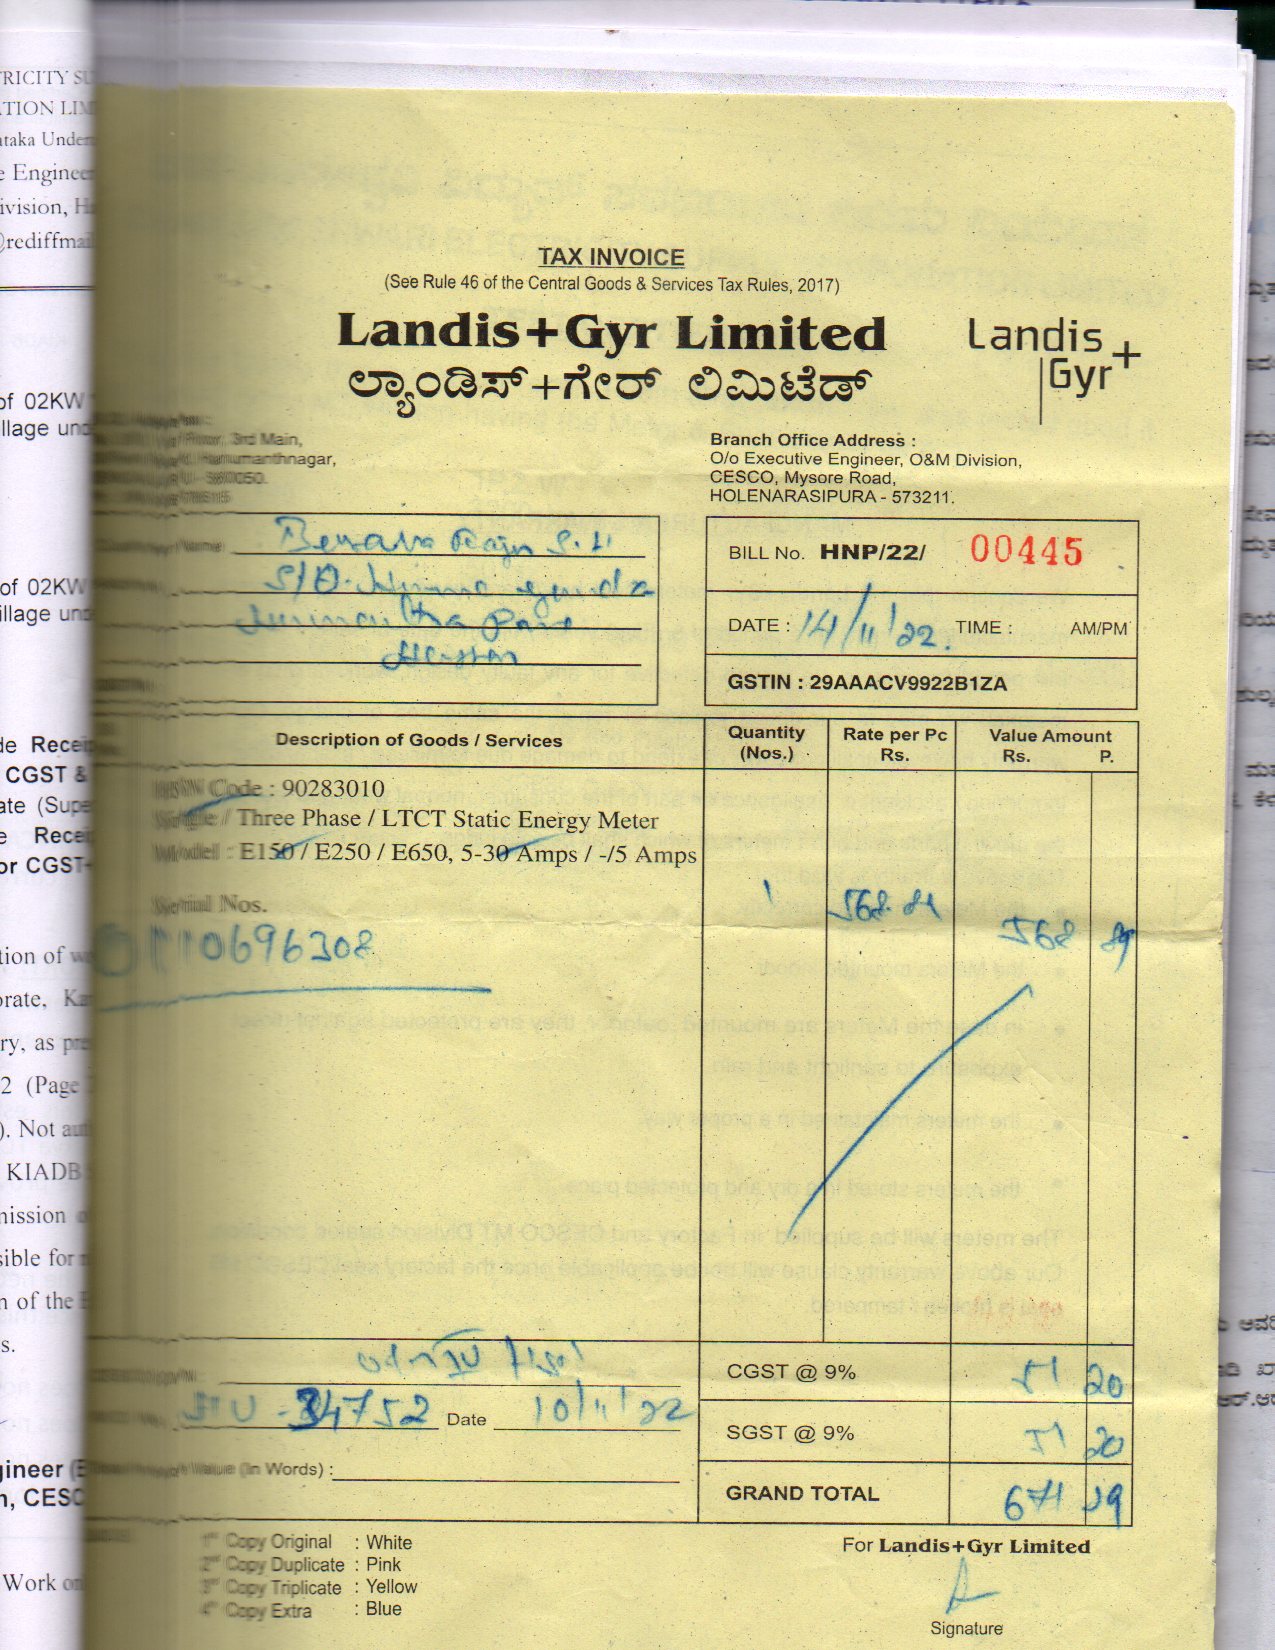 TRICITY SU
ATION LIM
ataka Under
e Engineer
ivision, H
@rediffmail
of 02KW
illage und
of 02KW
illage und
de Recei
CGST &
ate (Supe
e Recei
or CGST+
tion of w
orate, Ka
ry, as pre
2 (Page
). Not aut
KIADB
nission
sible for
n of the
s.
gineer (E
n, CESC
Work on
TAX INVOICE
(See Rule 46 of the Central Goods & Services Tax Rules, 2017)
Landis+Gyr Limited
ಲ್ಯಾಂಡಿಸ್+ಗೇರ್ ಲಿಮಿಟೆಡ್
Landis
Gyr+
3rd Main,
Hanumanthnagar,
560050.
Branch Office Address :
O/o Executive Engineer, O&M Division,
CESCO, Mysore Road,
HOLENARASIPURA - 573211.
Name
S/O.
Hassan
BILL No. HNP/22/ 00445
DATE : 14/11/22. TIME : AM/PM
GSTIN : 29AAACV9922B1ZA
Description of Goods / Services Quantity (Nos.) Rate per Pc Rs. Value Amount Rs. P.
HSN Code : 90283010
Single / Three Phase / LTCT Static Energy Meter
Model : E150 / E250 / E650, 5-30 Amps / -/5 Amps
Serial Nos.
1 568.89 568 89
0110696308
CGST @ 9% 51 20
34752 Date 10/11/22
SGST @ 9% 51 20
Value (in Words) :
GRAND TOTAL 671 29
1st Copy Original : White
2nd Copy Duplicate : Pink
3rd Copy Triplicate : Yellow
4th Copy Extra : Blue
For Landis+Gyr Limited
Signature